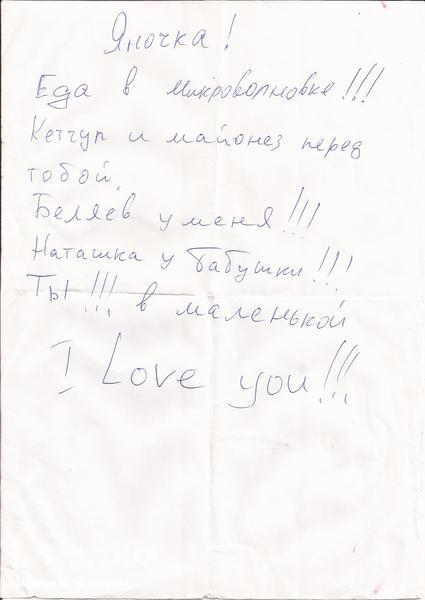 Яночка!
Еда в микроволновке!!!
Кетчуп и майонез перед
тобой.
Беляев у меня!!!
Наташка у бабушки!!!
Ты!!! в маленькой
I Love you!!!